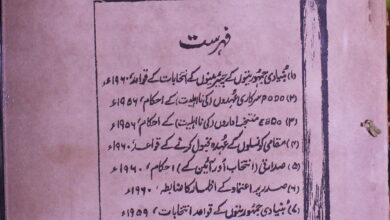 فہرست
(۱) بُنیادی جمہوریتوں کے چیئرمینوں کے انتخابات کے قواعد ۱۹۶۰ء
(۲) PODO سرکاری عہدوں (کی نااہلیت) کے احکام، ۱۹۵۶ء
(۳) EBDO منتخبہ اداروں (کی نااہلیت) کے احکام، ۱۹۵۶ء
(۴) مقامی کونسلوں کے عہدہ قبول کرنے کے قواعد ۱۹۶۰ء
(۵) صدارتی (انتخاب اور آئین کے) احکام، ۱۹۶۰ء
(۶) صدر پر اعتماد کے اظہار کا ضابطہ، ۱۹۶۰ء
(۷) بُنیادی جمہوریتوں کے قواعد انتخابات، ۱۹۵۹ء